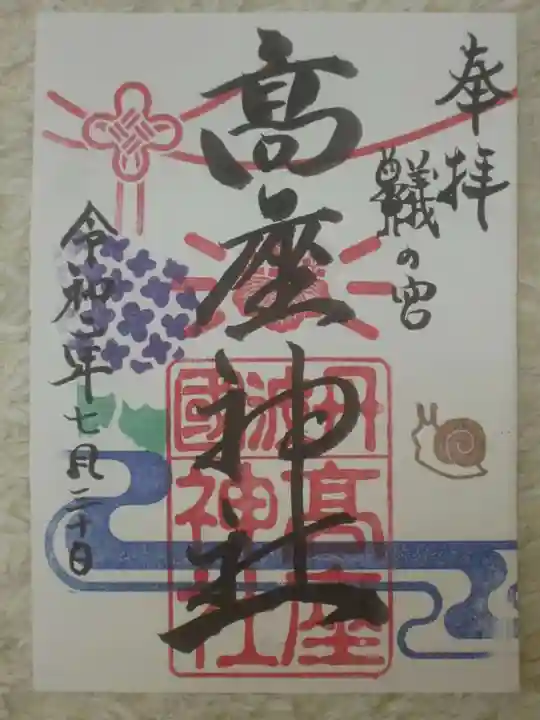 奉拝
蟻の宮
高座神社
丹波國
高座
神社
令和三年七月二十日